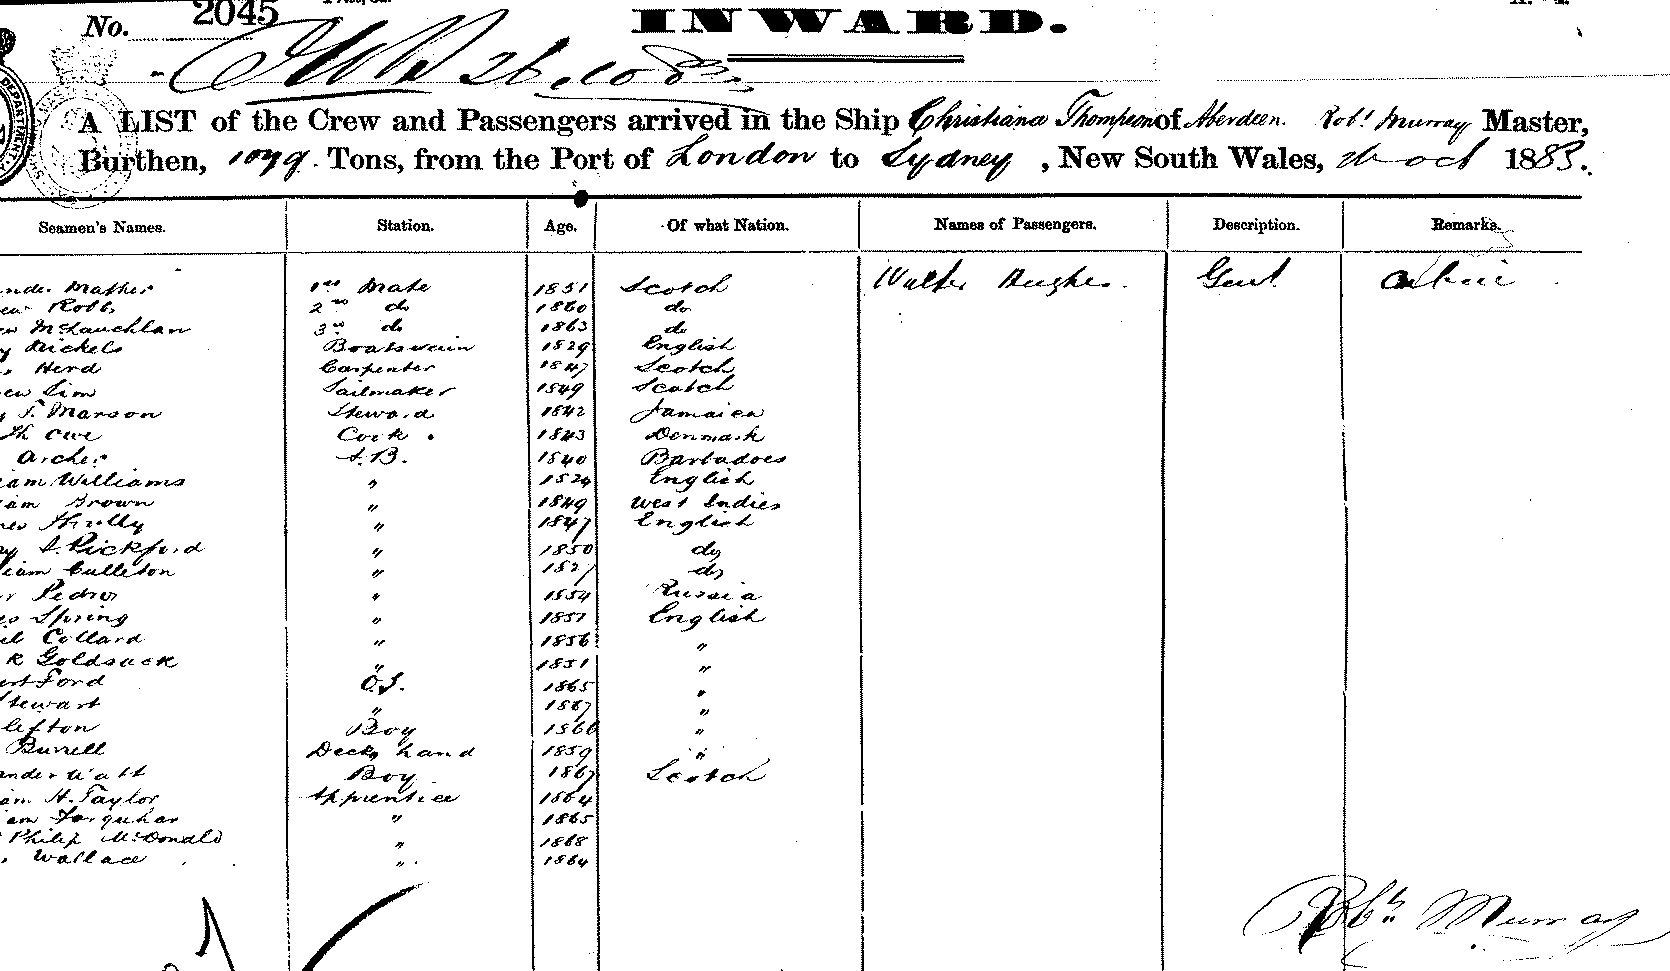 No. 2045
INWARD.
A LIST of the Crew and Passengers arrived in the Ship Christiana Thompson of Aberdeen. Robt Murray Master,
Burthen, 1079. Tons, from the Port of London to Sydney, New South Wales, Oct 1883.
Seamen's Names. Station. Age. Of what Nation. Names of Passengers. Description. Remarks.
nder Mather 1st Mate 1851 Scotch Walter Hughes. Gent Cabin
Robb 2nd do 1860 do
McLauchlan 3rd do 1863 do
y Nickels Boatswain 1829 English
Herd Carpenter 1847 Scotch
ew Sim Sailmaker 1849 Scotch
y S. Marson Steward 1842 Jamaica
Cook. 1843 Denmark
Archer A.B. 1840 Barbadoes
iam Williams " 1824 English
iam Brown " 1849 West Indies
" 1847 English
y S. Pickford " 1850 do
liam Culleton " 1827 do
r Pedro " 1854 Russia
es Spring " 1851 English
Collard " 1856 "
k Goldsack " 1851 "
ert Ford O.S. 1865 "
Stewart " 1867 "
lifton Boy 1866 "
Burrell Deck hand 1859 "
ander Watt Boy 1867 Scotch
iam H. Taylor Apprentice 1864
iam Farquhar " 1865
Philip McDonald " 1868
Wallace " 1864
Robt Murray